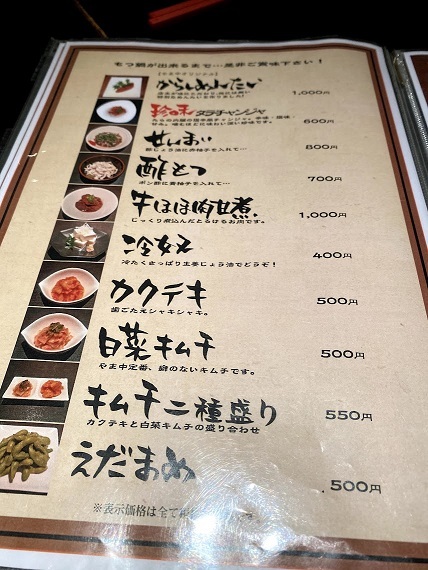 もつ鍋が出来るまで…是非ご賞味下さい！
からしめんたい 1,000円
珍味 タラチャンジャ 600円
せんまい 800円
酢もつ 700円
ポン酢に青柚子を入れて…
牛ほほ肉甘煮 1,000円
じっくり煮込んだとろけるお肉です。
冷奴 400円
冷たくさっぱり生姜じょう油でどうぞ！
カクテキ 500円
歯ごたえシャキシャキ。
白菜キムチ 500円
やま中定番、癖のないキムチです。
キムチ二種盛り 550円
カクテキと白菜キムチの盛り合わせ
えだまめ 500円
※表示価格は全て